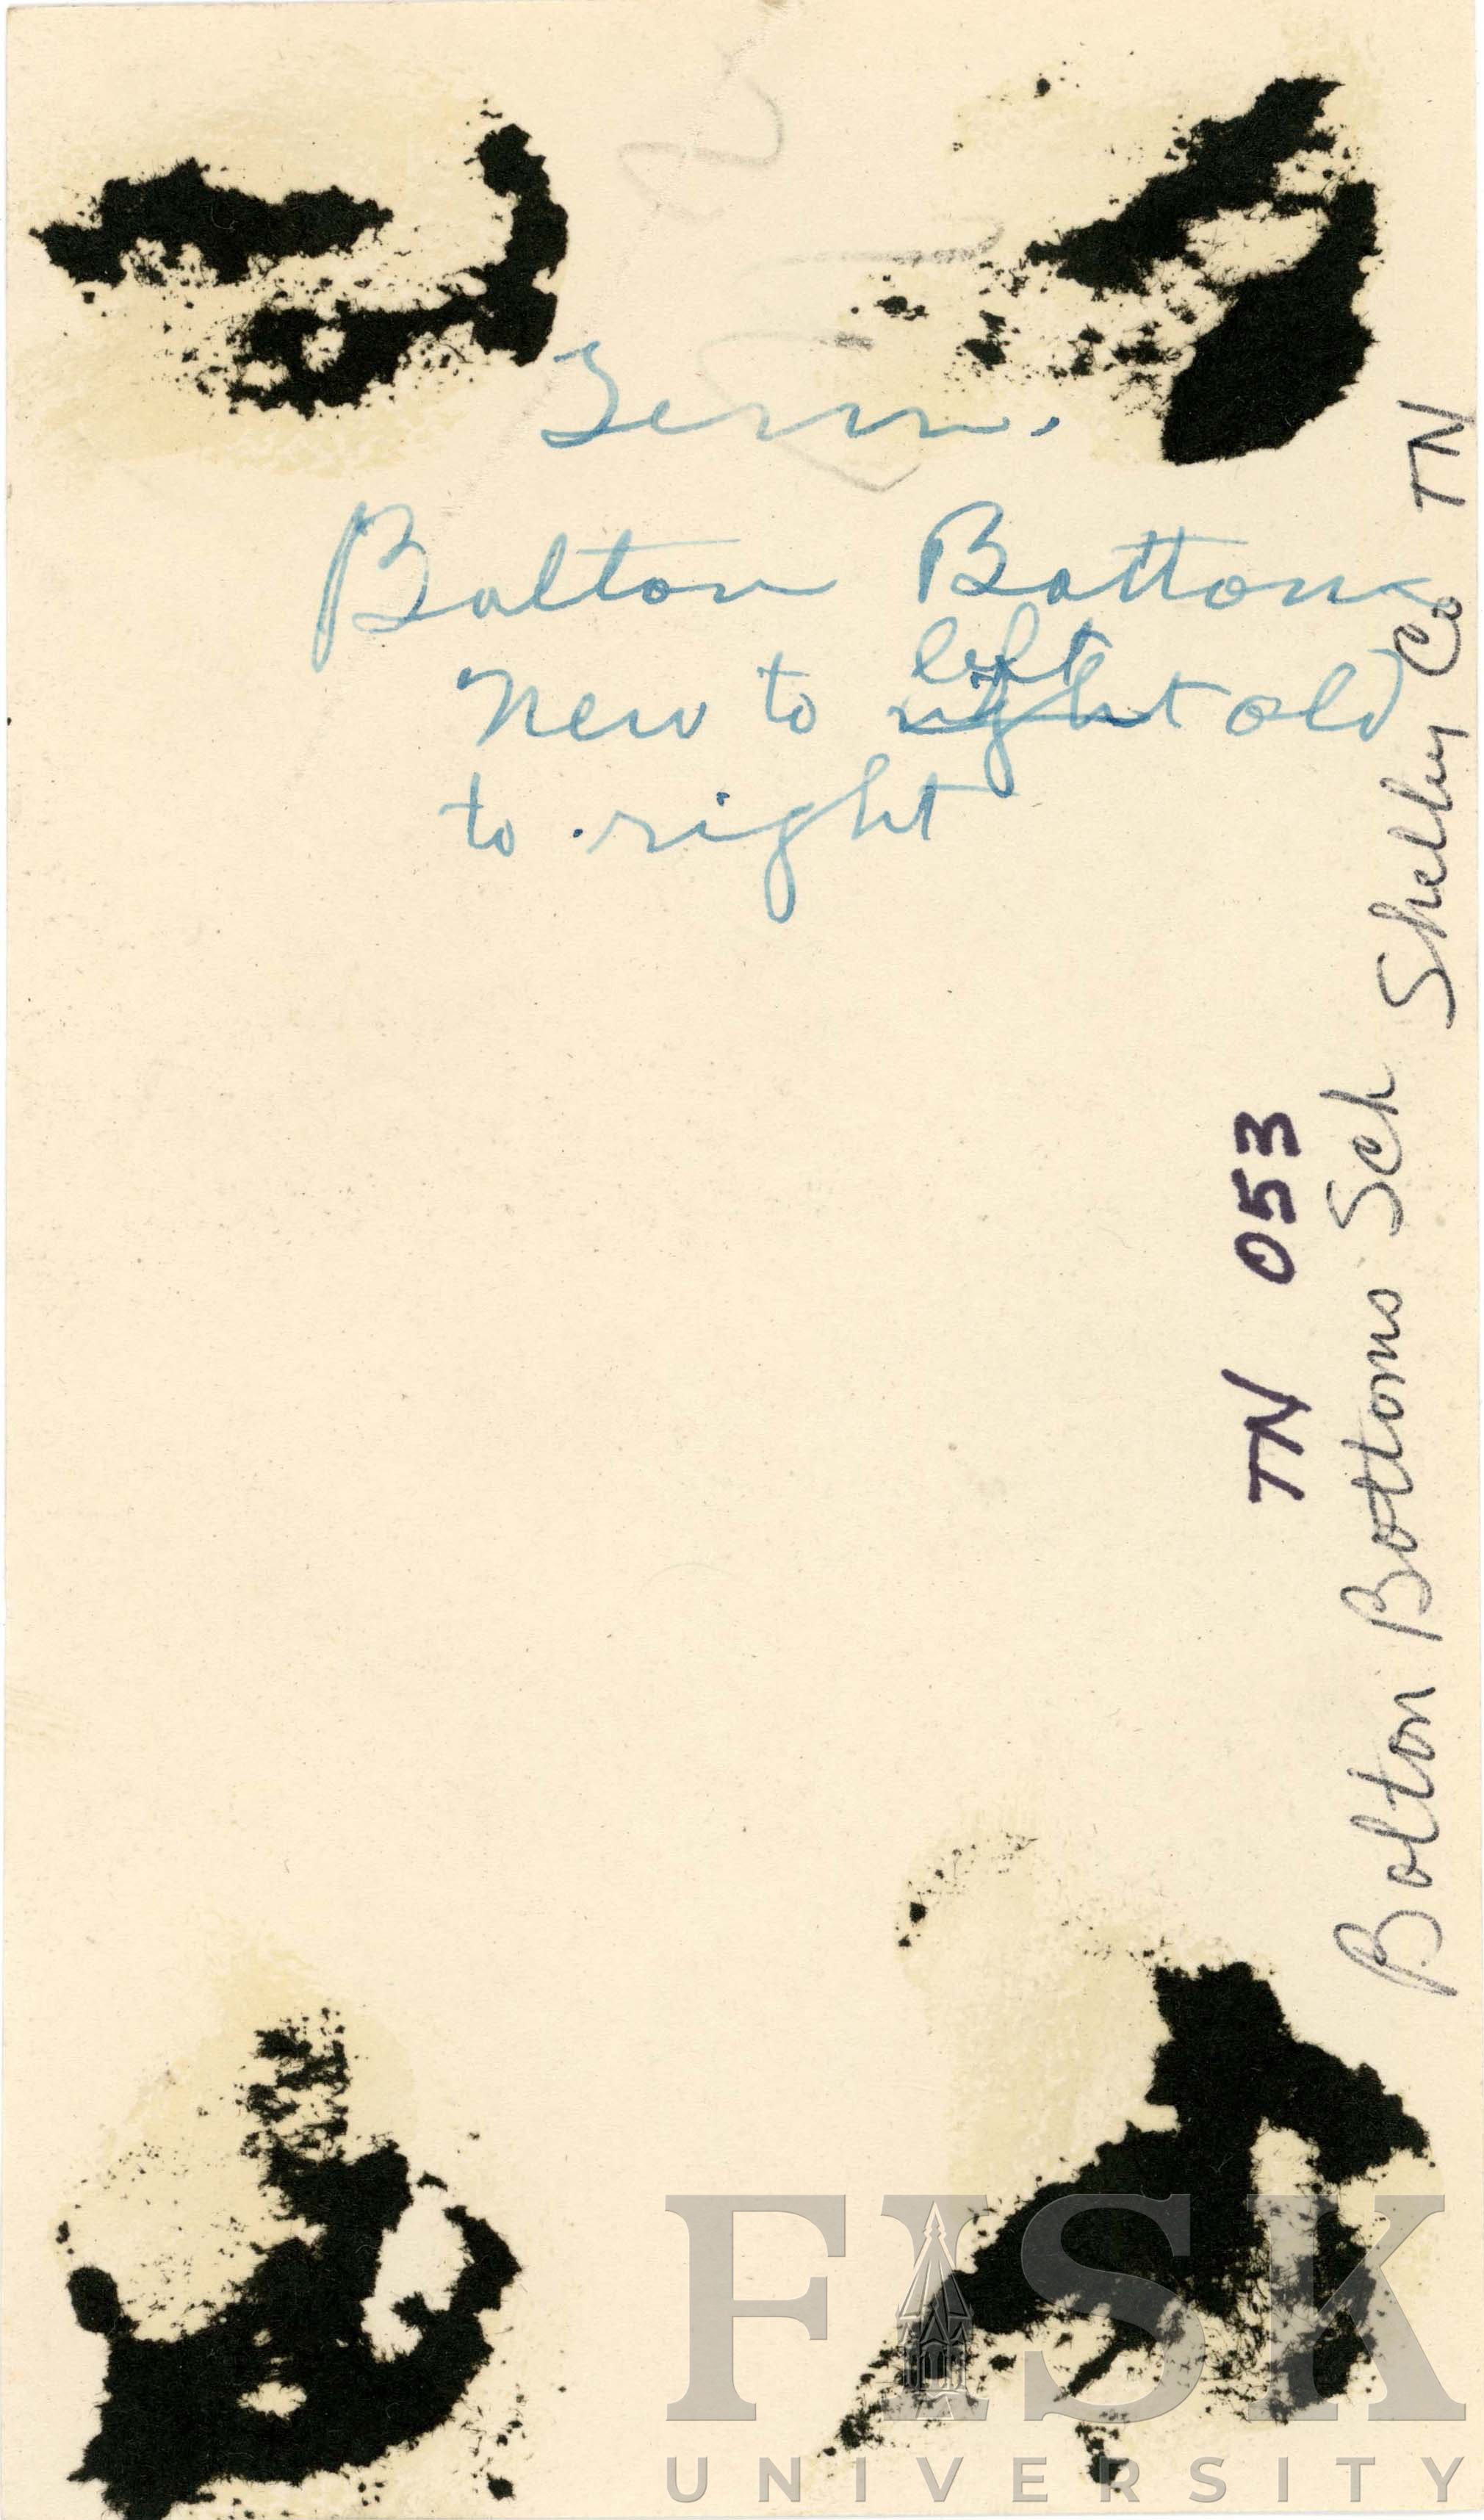 Tenn.
Bolton Bottoms
left
New to right old
to right
TN 053
Bolton Bottoms Sch Shelby Co TN
FISK
UNIVERSITY